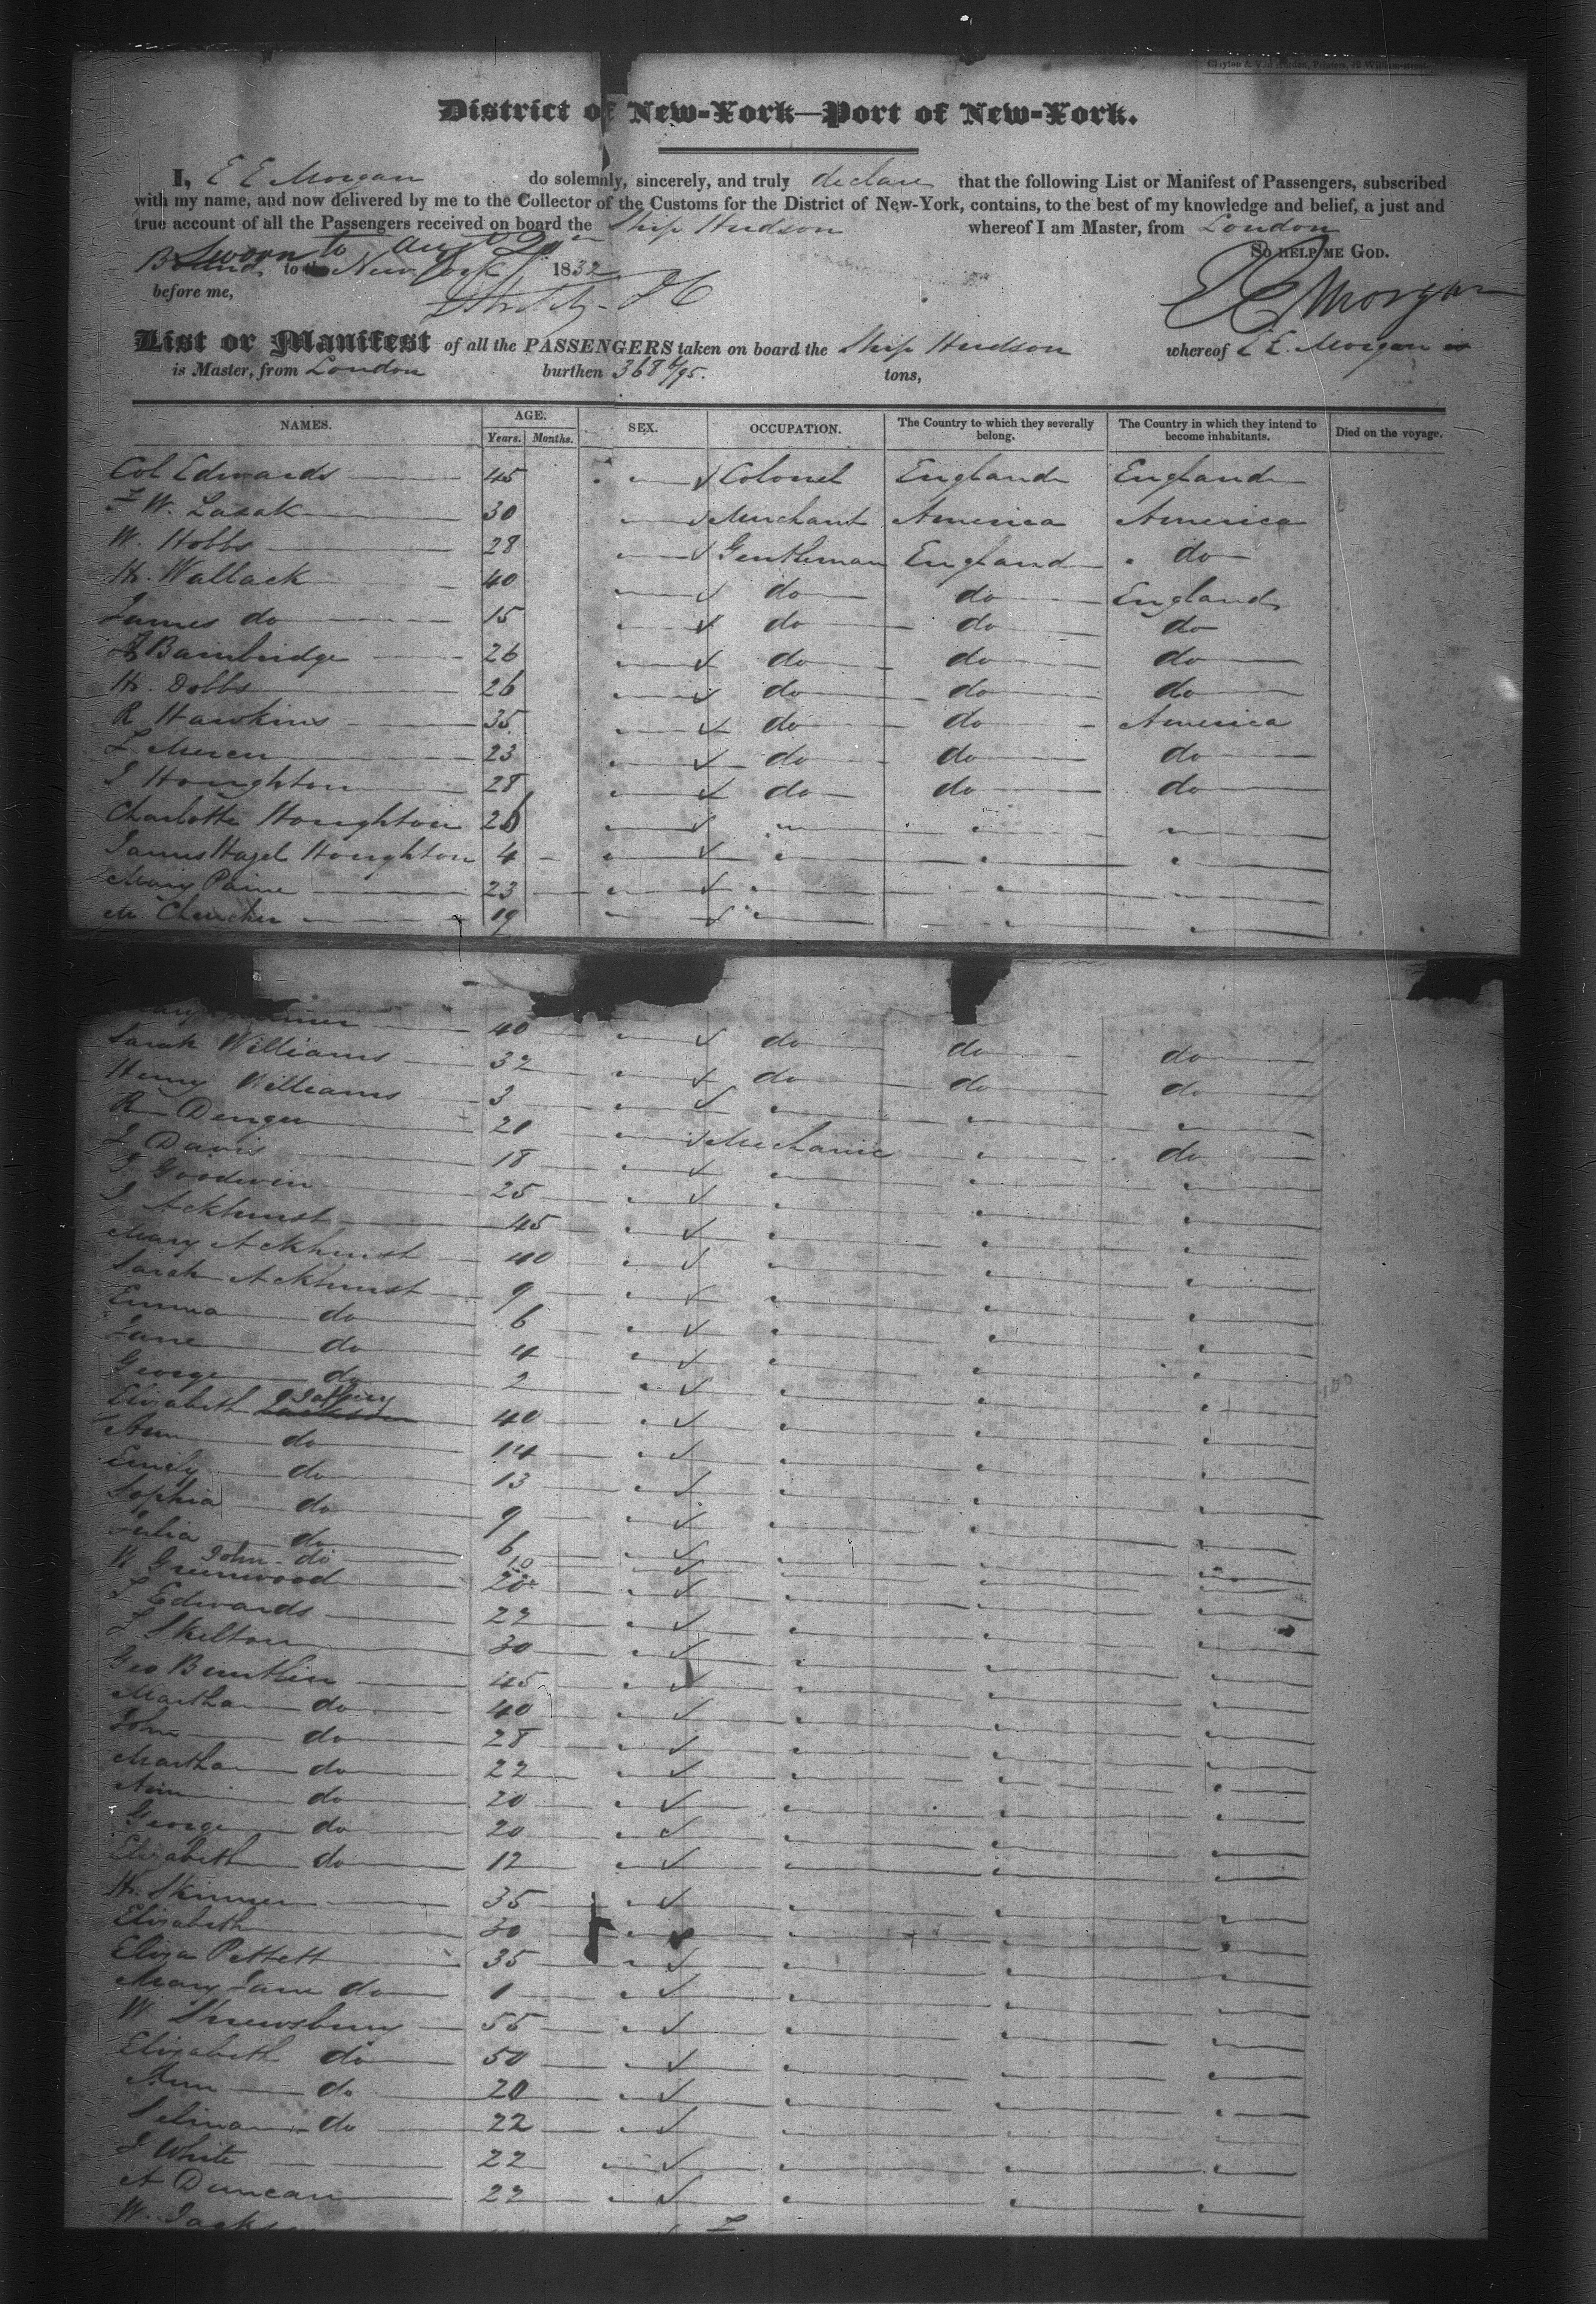 District of New-York—Port of New-York.
I, E E Morgan do solemnly, sincerely, and truly declare that the following List or Manifest of Passengers, subscribed
with my name, and now delivered by me to the Collector of the Customs for the District of New-York, contains, to the best of my knowledge and belief, a just and
true account of all the Passengers received on board the Ship Hudson whereof I am Master, from London
Sworn to Augt
Bound to New York 1832 So HELP ME GOD.
before me, E E Morgan
List or Manifest of all the PASSENGERS taken on board the Ship Hudson whereof E E. Morgan is
is Master, from London burthen 368 6/95. tons,
NAMES. AGE. SEX. OCCUPATION. The Country to which they severally belong. The Country in which they intend to become inhabitants. Died on the voyage.
Years. Months.
Col Edwards 45 Colonel England England
W. Lasak 30 Merchant America America
W. Hobbs 28 Gentleman England do
H. Wallack 40 do do England
James do 15 do do do
Bainbridge 26 do do do
H. Dobbs 26 do do do
R Hawkins 35 do do America
23 do do do
J Houghton 28 do do do
Charlotte Houghton 26
James Hazel Houghton 4
Mary Paine 23
19
40 do do do
Sarah Williams 32 do do do
Henry Williams 3
R 20 Mechanic do
J Davis 18
Goodwin 25
J Ackhurst 45
Mary Ackhurst 40
Sarah Ackhurst 9
Emma do 6
Jane do 4
George do 2
Elizabeth 40
Ann do 14
Emily do 13
Sophia do 9
Julia do 6
John do 10
W Greenwood 20
Edwards 22
Skelton 30
Geo 45
Martha do 40
John do 28
Martha do 22
Ann do 20
George do 20
Elizabeth do 12
H. Skinner 35
Elizabeth 30
Eliza Pettett 35
Mary Jane do 1
W Shrewsbury 55
Elizabeth do 50
Ann do 20
Selina do 22
J White 22
A Duncan 22
W.